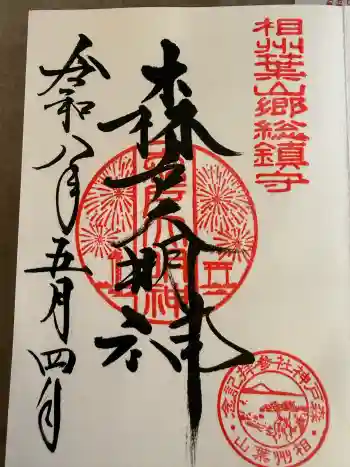 相州葉山郷総鎮守
森戸大明神
令和八年五月四日
森戸大明神
森戸神社参拝記念
相州葉山